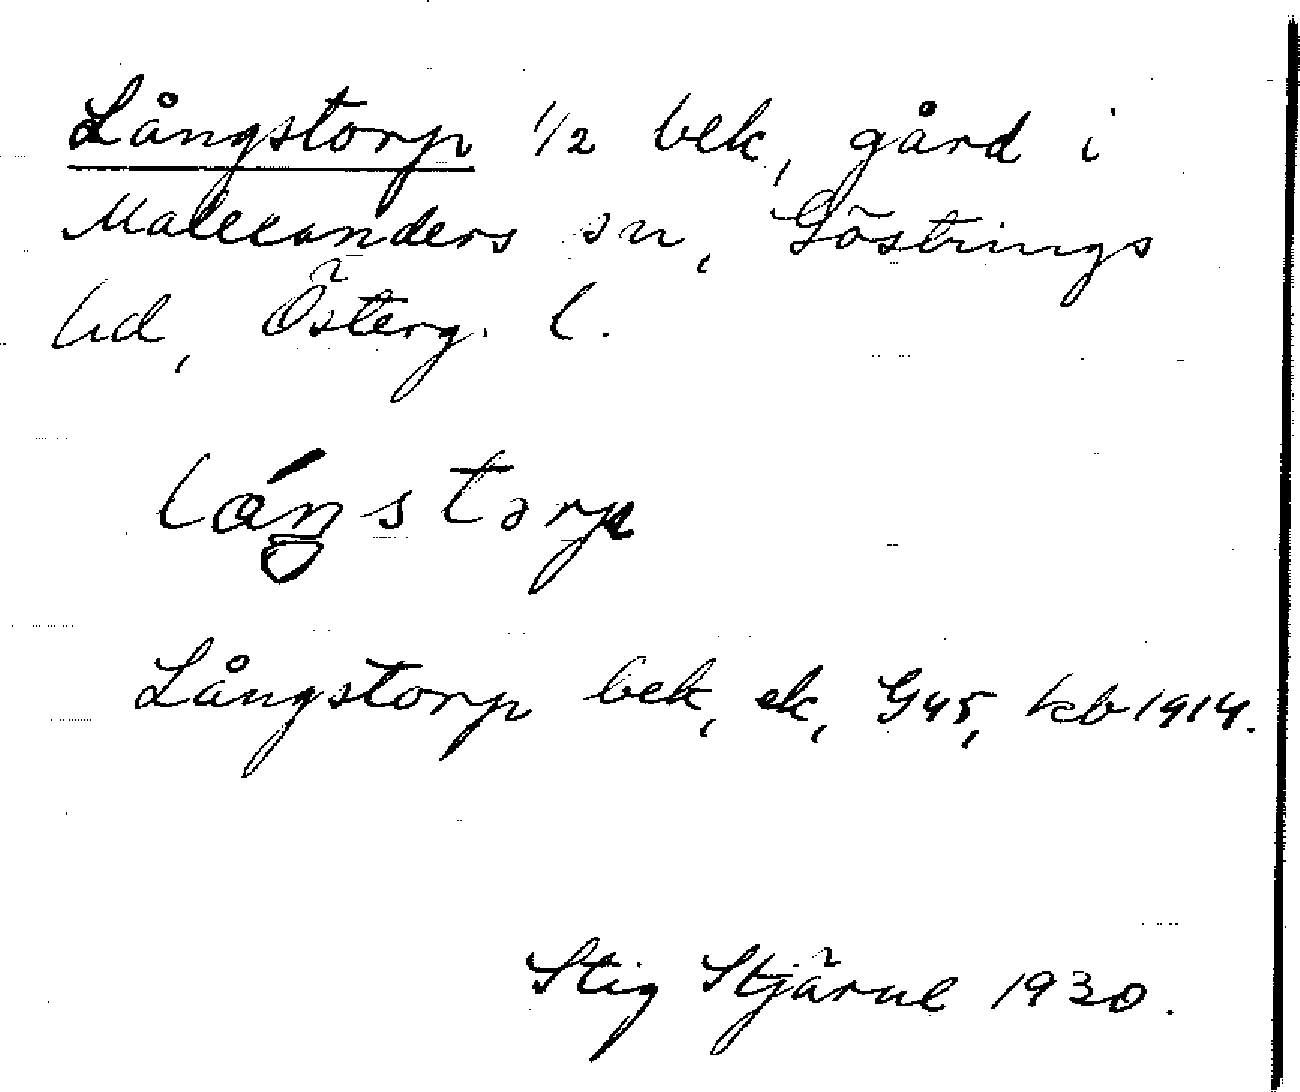 Långstorp 1/2 bek, gård i
Malexanders sn, Göstrings
hd, Österg. l.
lángstorp
Långstorp bek, ek, G45, kb 1914.
Stig Stjärne 1930.